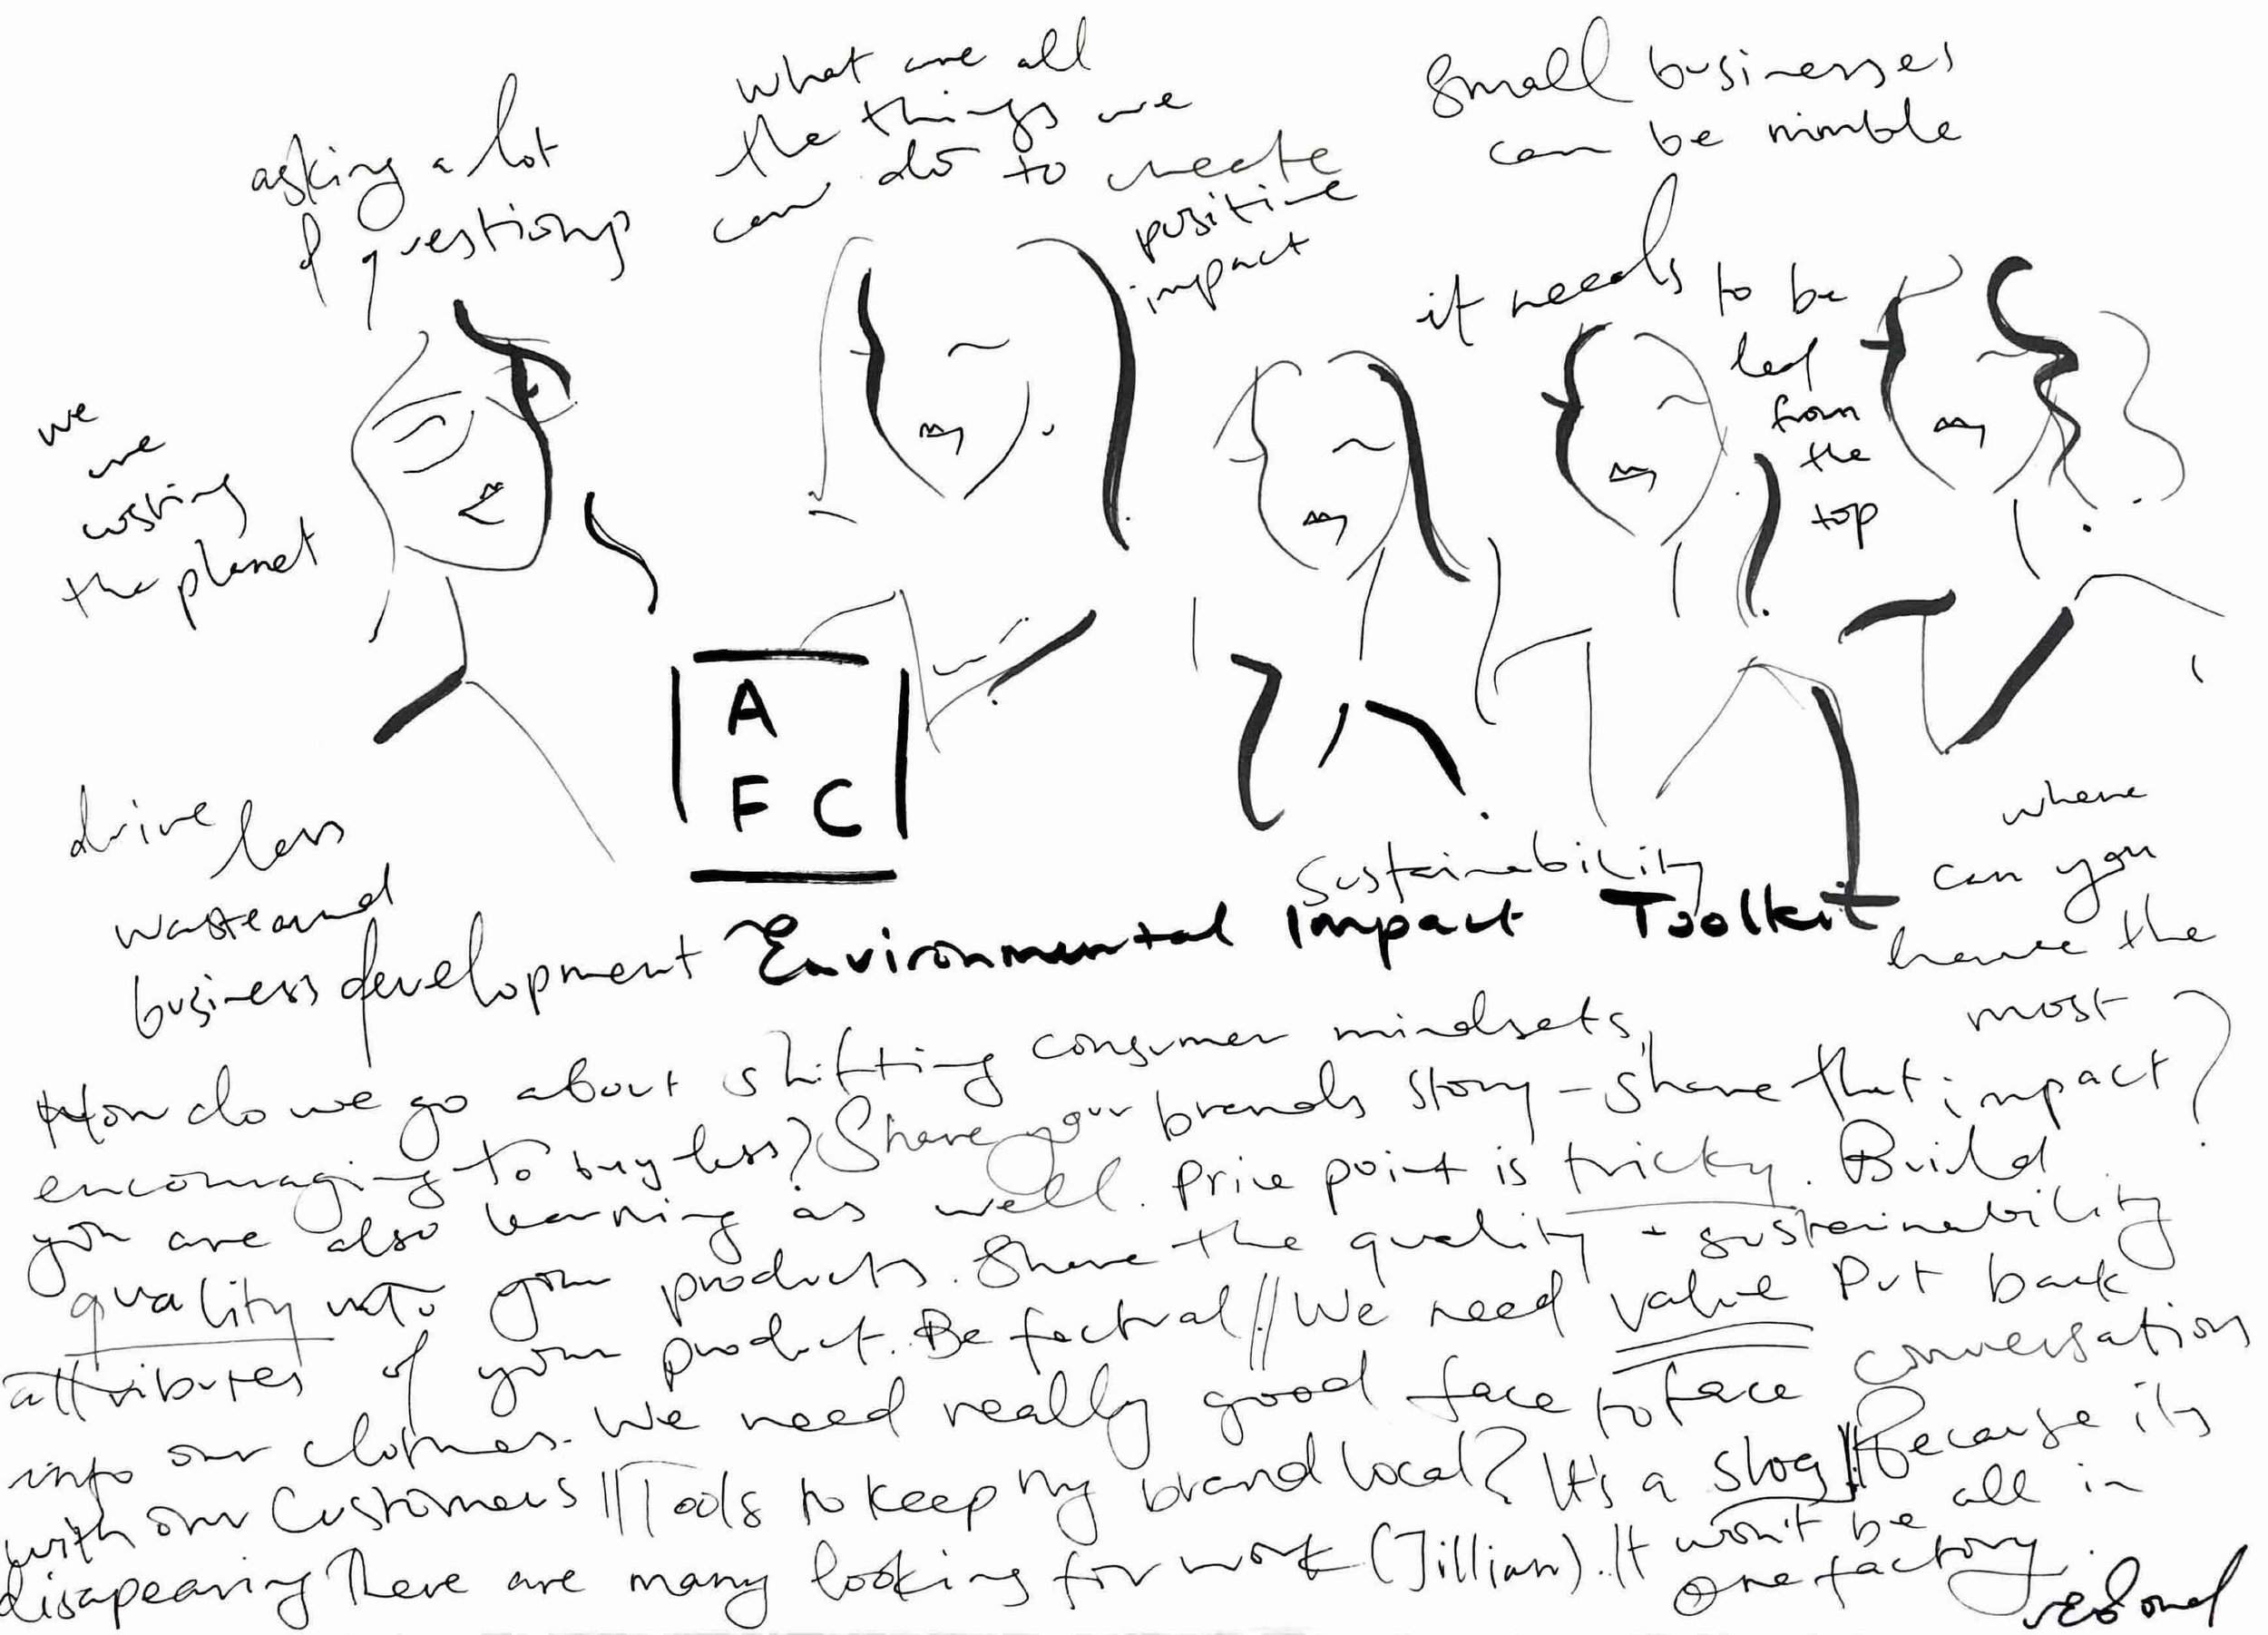 asking a lot
of questions
what are all
the things we
can do to create
positive
impact
Small businesses
can be nimble
it needs to be
led
from
the
top
we
are
wasting
the planet
A
F C
drive less
waste and
business development
Sustainability
Environmental Impact Toolkit
where
can you
have the
most
impact?
How do we go about shifting consumer mindsets,
encouraging to buy less? Share your brands story - share that
you are also learning as well. Price point is tricky. Build
quality into your products. Share the quality + sustainability
attributes of your product. Be factual // We need value put back
into our clothes. We need really good face to face conversation
with our Customers // Tools to keep my brand local? It's a slog // Because its
disapearing There are many looking for work (Jillian). It won't be all in
one factory.